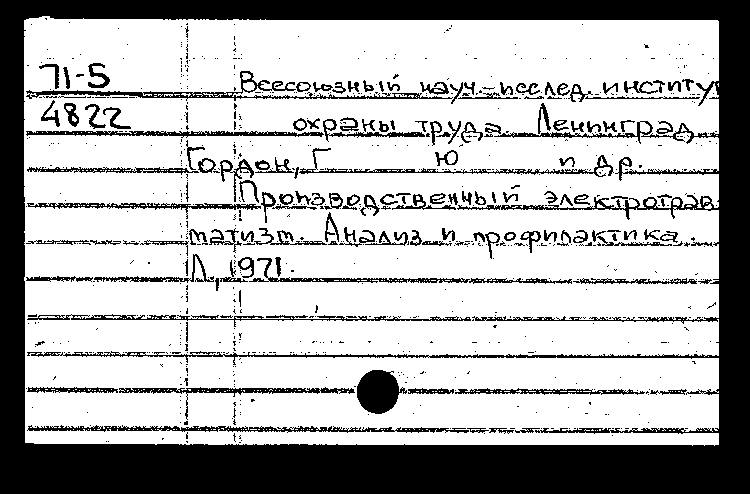 71-5
Всесоюзный науч.-исслед. институ
4822
охраны труда. Ленинград
Гордон, Г Ю и др.
Производственный электротрав
матизм. Анализ и профилактика.
Л., 1971.